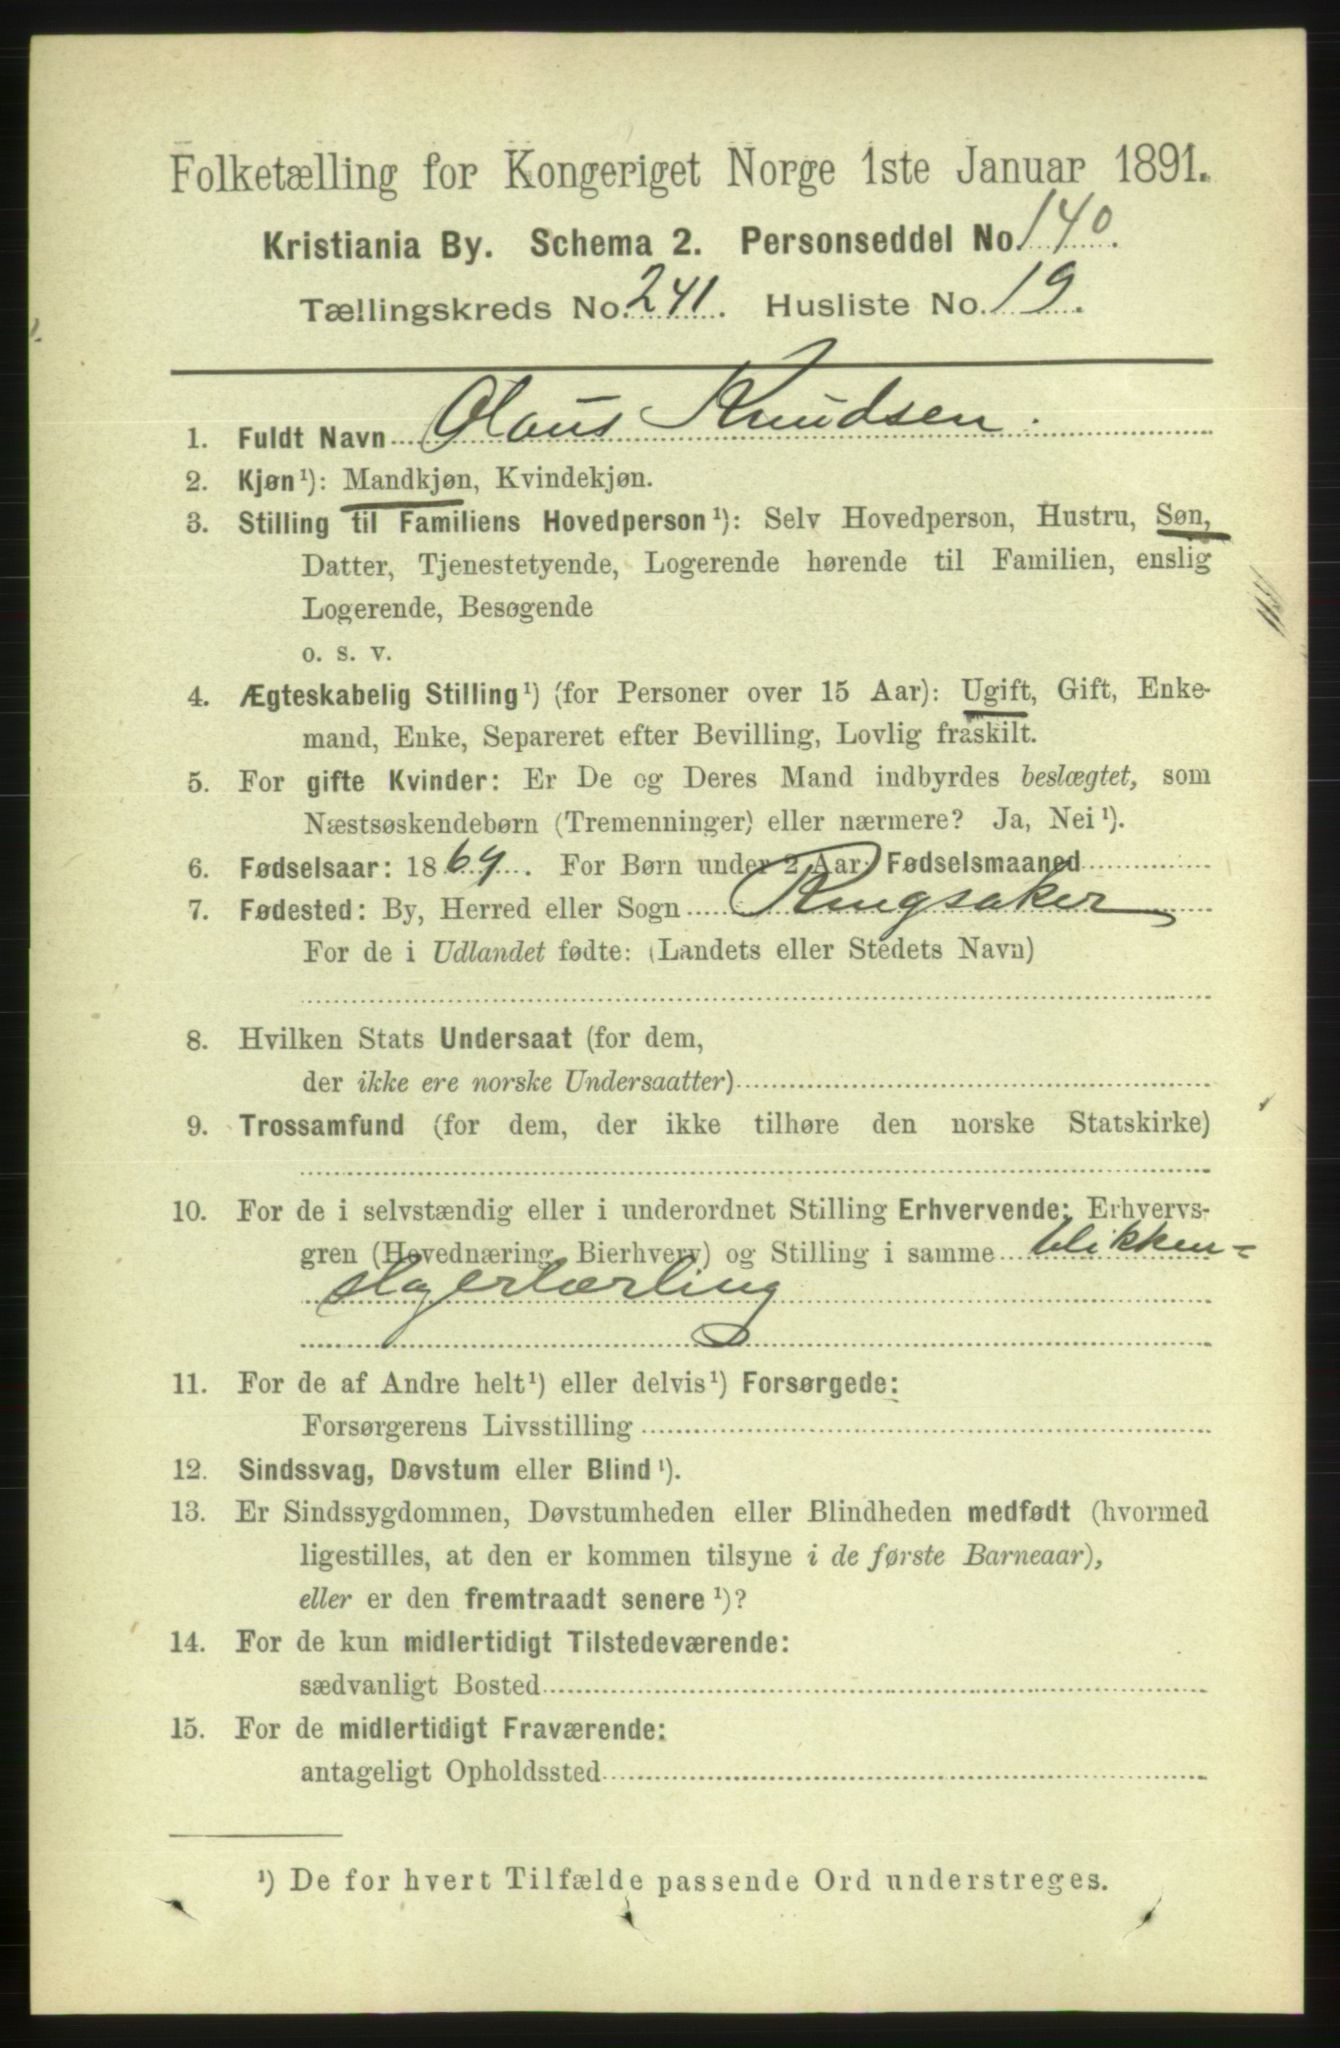 Folketælling for Kongeriget Norge 1ste Januar 1891.
Kristiania By. Schema 2. Personseddel No. 140.
Tællingskreds No. 241. Husliste No. 19.
1. Fuldt Navn Olaus Knudsen.
2. Kjøn¹): Mandkjøn, Kvindekjøn.
3. Stilling til Familiens Hovedperson¹): Selv Hovedperson, Hustru, Søn,
Datter, Tjenestetyende, Logerende hørende til Familien, enslig
Logerende, Besøgende
o. s. v.
4. Ægteskabelig Stilling¹) (for Personer over 15 Aar): Ugift, Gift, Enke-
mand, Enke, Separeret efter Bevilling, Lovlig fraskilt.
5. For gifte Kvinder: Er De og Deres Mand indbyrdes beslægtet, som
Næstsøskendebørn (Tremenninger) eller nærmere? Ja, Nei¹).
6. Fødselsaar: 1869. For Børn under 2 Aar: Fødselsmaaned
7. Fødested: By, Herred eller Sogn Ringsaker
For de i Udlandet fødte: (Landets eller Stedets Navn)
8. Hvilken Stats Undersaat (for dem,
der ikke ere norske Undersaatter)
9. Trossamfund (for dem, der ikke tilhøre den norske Statskirke)
10. For de i selvstændig eller i underordnet Stilling Erhvervende: Erhvervs-
gren (Hovednæring, Bierhverv) og Stilling i samme blikken-
slagerlærling
11. For de af Andre helt¹) eller delvis¹) Forsørgede:
Forsørgerens Livsstilling
12. Sindssvag, Døvstum eller Blind¹).
13. Er Sindssygdommen, Døvstumheden eller Blindheden medfødt (hvormed
ligestilles, at den er kommen tilsyne i de første Barneaar),
eller er den fremtraadt senere¹)?
14. For de kun midlertidigt Tilstedeværende:
sædvanligt Bosted
15. For de midlertidigt Fraværende:
antageligt Opholdssted
¹) De for hvert Tilfælde passende Ord understreges.